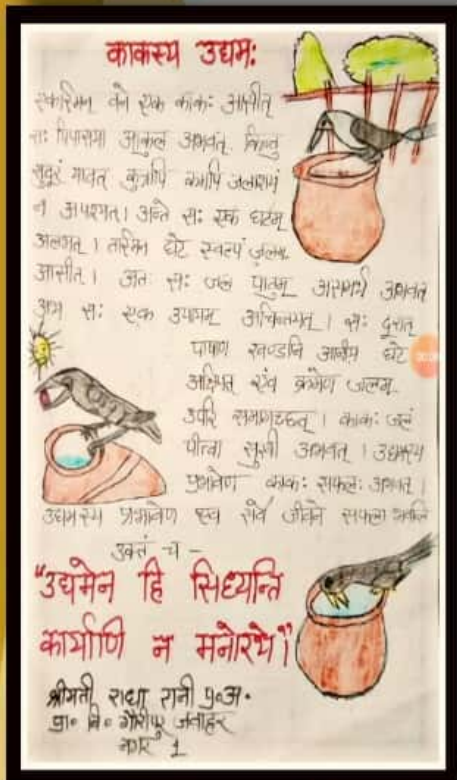 काकस्य उद्यमः
एकस्मिन् वने एक काकः आसीत्
सः पिपासया आकुल अभवत्. किन्तु
सुदूरं यावत् कुत्रापि कमपि जलाशयं
न अपश्यत्। अन्ते सः एक घटम्
अलभत्। तस्मिन घटे स्वल्पं जलम्
आसीत्। अत सः जल पातुम् असमर्थ अभवत्
सः एक उपायम् अचिन्तयत्। सः दूरात्
पाषाण खण्डानि आनीय घटे
अक्षिपत् एवं क्रमेण जलम्
उपरि समागच्छत्। काकः जलं
पीत्वा सुखी अभवत्। उद्यमस्य
प्रभावेण काकः सफलः अभवत्।
उद्यमस्य प्रभावेण एव सर्वे जीवने सफला भवन्ति
उक्तं च -
"उद्यमेन हि सिध्यन्ति
कार्याणि न मनोरथै।"
श्रीमती राधा रानी प्र०अ०
प्रा० वि० गौरीपुर जवाहर
नगर 1